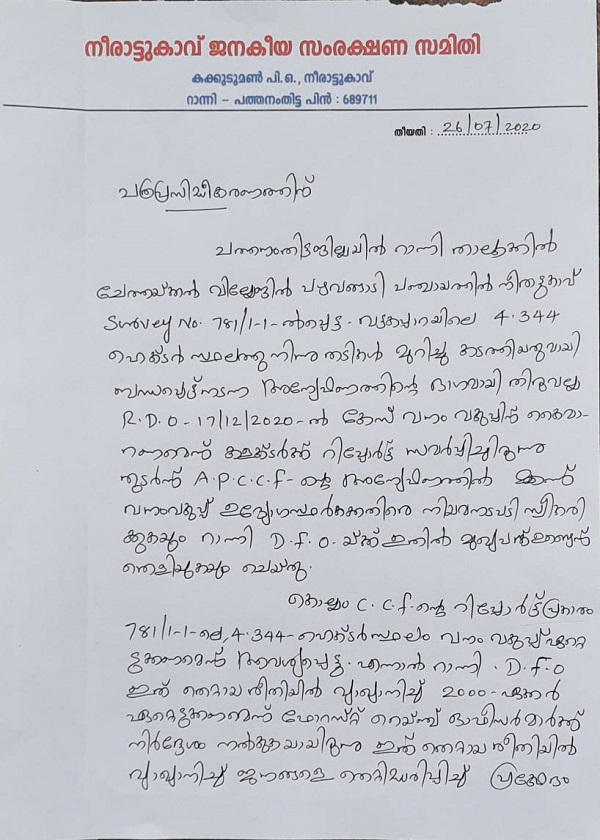 നീരാട്ടുകാവ് ജനകീയ സംരക്ഷണ സമിതി
കക്കുടുമൺ പി.ഒ., നീരാട്ടുകാവ്
റാന്നി – പത്തനംതിട്ട പിൻ : 689711
തീയതി : 26/07/2020
പത്രപ്രസിദ്ധീകരണത്തിന്
പത്തനംതിട്ടജില്ലയിൽ റാന്നി താലൂക്കിൽ
ചേത്തയ്ക്കൽ വില്ലേജിൽ പഴവങ്ങാടി പഞ്ചായത്തിൽ നീരാട്ടുകാവ്
Survey No. 781/1-1-ൽപ്പെട്ട. വട്ടകപ്പാറയിലെ 4.344
ഹെക്ടർ സ്ഥലത്തു നിന്നു തടികൾ മുറിച്ചു കടത്തിയതുമായി
ബന്ധപ്പെട്ട് നടന്ന അന്വേഷണത്തിന്റെ ഭാഗമായി തിരുവല്ല
R.D.O - 17/12/2020-ൽ കേസ് വനം വകുപ്പിന് കൈമാ-
റണമെന്ന് കളക്ടർക്ക് റിപ്പോർട്ട് സമർപ്പിച്ചിരുന്നു
തുടർന്ന് A.P.C.C.F-ന്റെ അന്വേഷണത്തിൽ
വനംവകുപ്പ് ഉദ്യോഗസ്ഥർക്കെതിരെ നിയമനടപടി സ്വീകരി
ക്കുകയും റാന്നി D.F.O.യ്ക്ക് ഇതിൽ മുഖ്യപങ്കുണ്ടെന്ന്
തെളിയുകയും ചെയ്തു.
കൊല്ലം C.C.F-ന്റെ റിപ്പോർട്ട് പ്രകാരം
781/1-1-ലെ 4.344-ഹെക്ടർ സ്ഥലം വനം വകുപ്പ് ഏറ്റെ
ടുക്കണമെന്ന് ആവശ്യപ്പെട്ടു. എന്നാൽ റാന്നി. D.F.O
ഇത് തെറ്റായ രീതിയിൽ വ്യാഖ്യാനിച്ച് 2000-ഏക്കർ
ഏറ്റെടുക്കണമെന്ന് ഫോറസ്റ്റ് റെയ്ഞ്ച് ഓഫീസർമാർക്ക്
നിർദ്ദേശം നൽകുകയായിരുന്നു ഇത് തെറ്റായ രീതിയിൽ
വ്യാഖ്യാനിച്ച് ജനങ്ങളെ തെറ്റിദ്ധരിപ്പിച്ച്